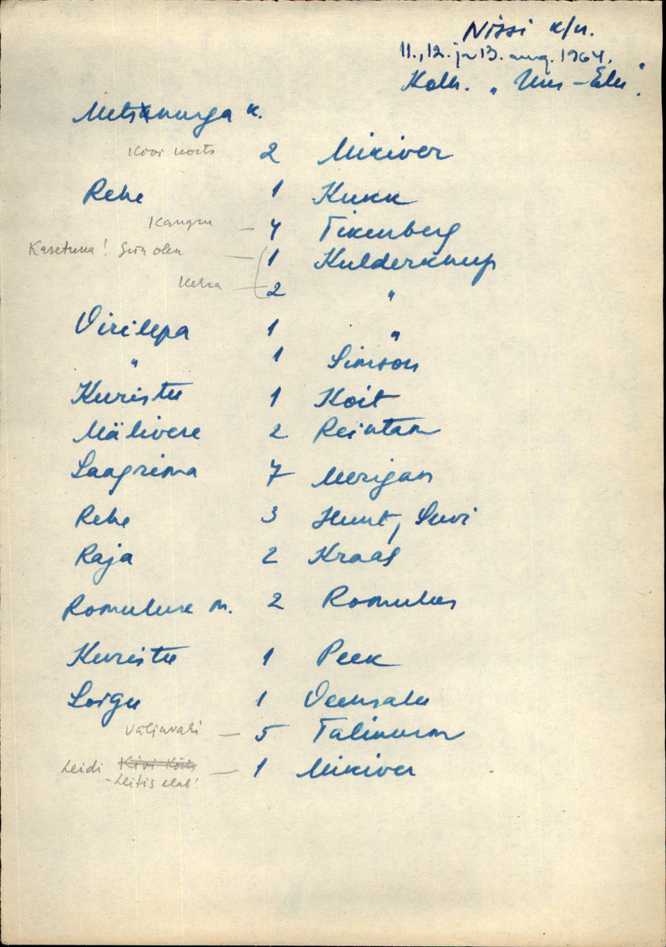 Nissi k/n.
11., 12. ja 13. aug. 1964.
Kolh. "Uus-Elu".
Metsanurga k.
2 Mikiver
Rehe 1 Kukk
Kangru – 4 Tikenberg
Kasetuna! Siin olen – 1 Kulderknup
Keha – 2 "
Virilepa 1 "
" 1 Simson
Kuristu 1 Koit
Mälivere 2 Reintam
Saagrima 7 Merigan
Rehe 3 Hunt, Suvi
Raja 2 Kraas
Romuluse m. 2 Romulus
Kuristu 1 Peek
Soigu 1 Veensalu
Väljavahi – 5 Talinurm
Leidi – 1 Mikiver
- Leitis elab!